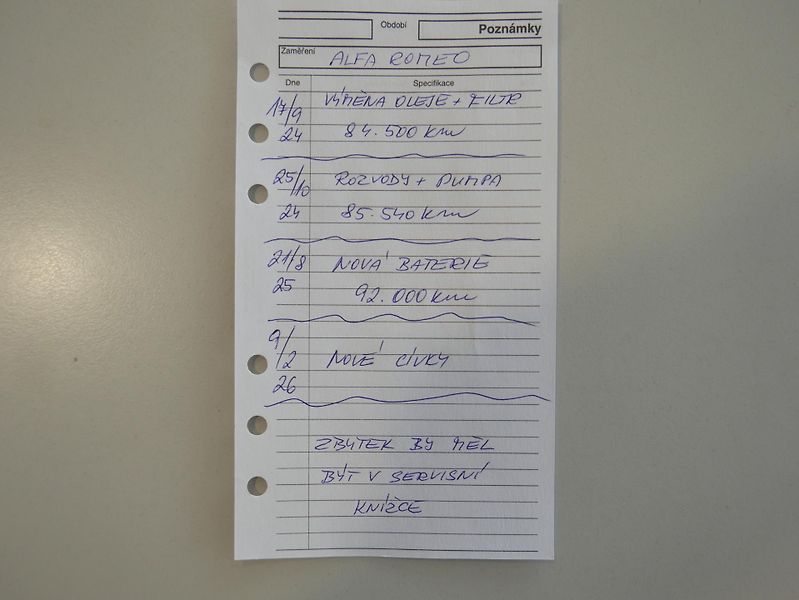 Období
Poznámky
Zaměření ALFA ROMEO
Dne Specifikace
17/9 VÝMĚNA OLEJE + FILTR
24 84.500 km
25/10 ROZVODY + PUMPA
24 85.540 km
21/8 NOVÁ BATERIE
25 92.000 km
9/2 NOVÉ CÍVKY
26
ZBYTEK BY MĚL
BÝT V SERVISNÍ
KNÍŽCE